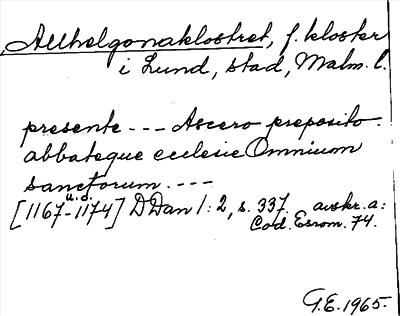 Allhelgonaklostret, f. kloster
i Lund, stad, Malm. l.
presente --- Ascero preposito.
abbateque ecclesie Omnium
sanctorum. ---
u.å.
[1167-1174] DDan 1:2, s. 337. avskr. a:
Cod. Esrom. 74.
G.E. 1965.